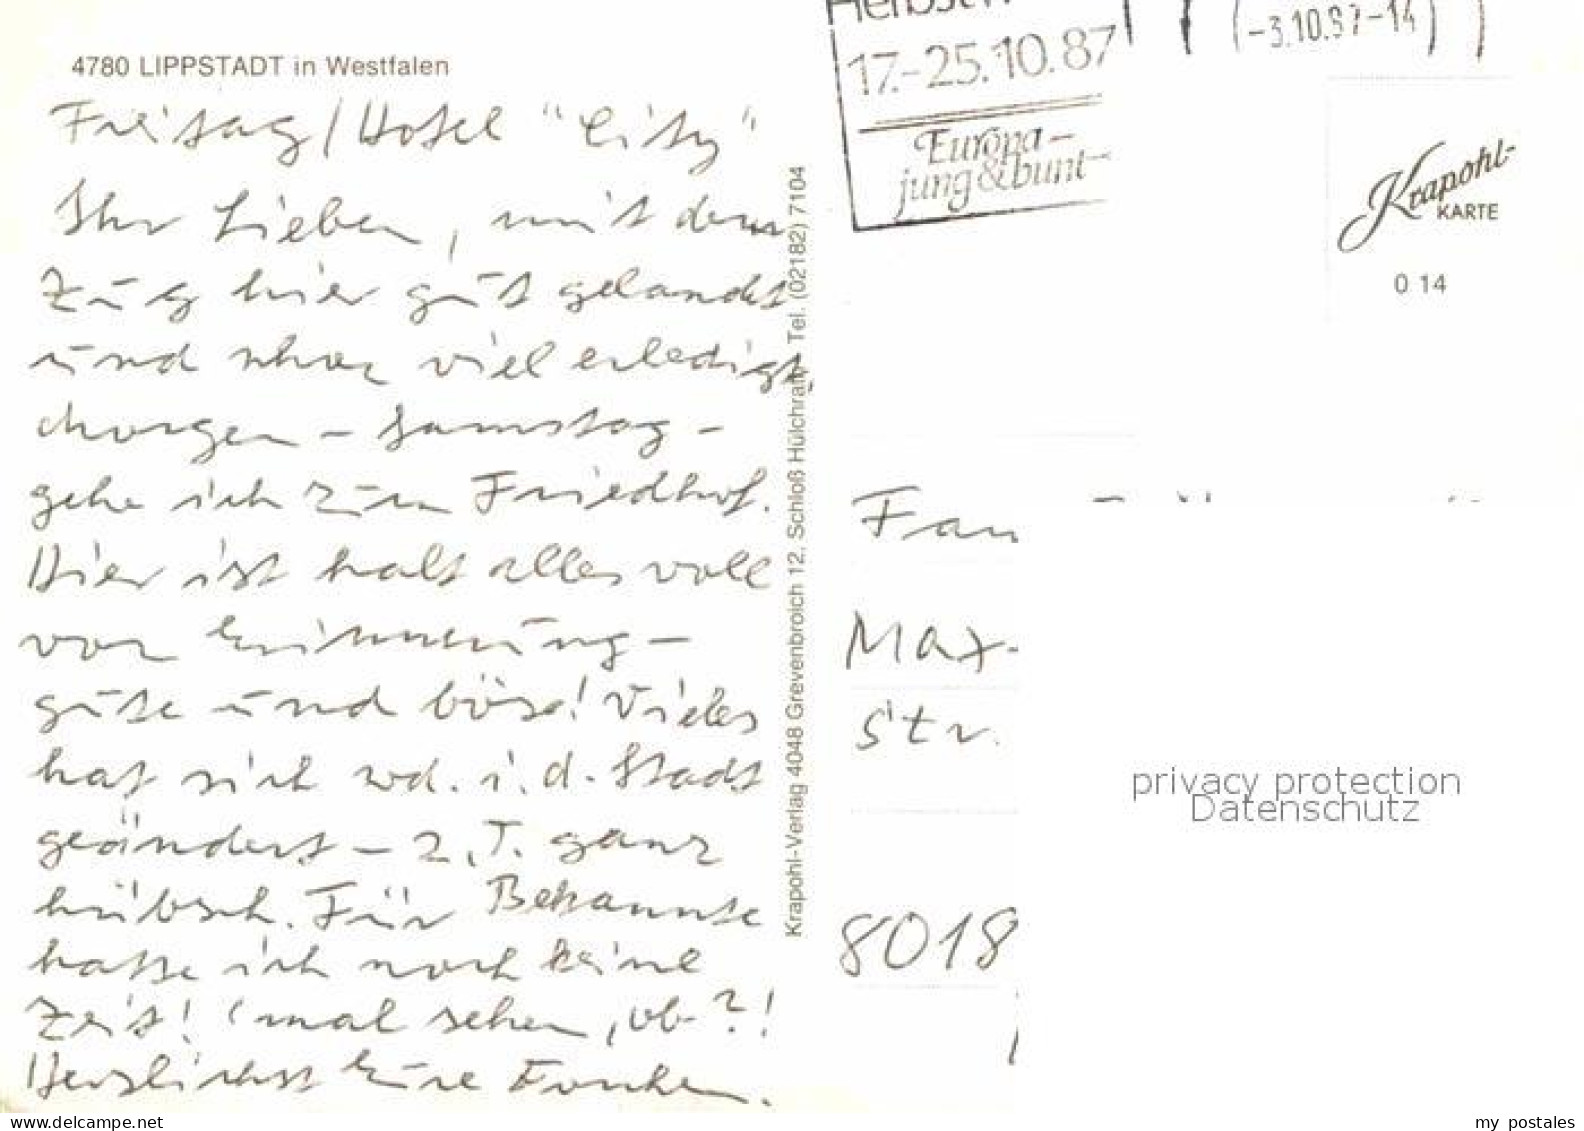 4780 LIPPSTADT in Westfalen
Freitag / Hotel "City"
Ihr Lieben, mit dem
Zug hier gut gelandet
und schon viel erledigt,
morgen - Samstag -
gehe ich zum Friedhof.
Hier ist halt alles voll
von Erinnerung -
gute und böse! Vieles
hat sich wd. i. d. Stadt
geändert - z.T. ganz
hübsch. Für Bekannte
hatte ich noch keine
Zeit! ('mal sehen, ob ?!
Herzlichst Eure
Krapohl-Verlag 4048 Grevenbroich 12, Schloß Hülchrath Tel. (02182) 7104
17.-25.10.87
Europa-
jung & bunt-
-3.10.87-14
Krapohl-
KARTE
0 14
Fam
Max-
Str.
8018
privacy protection
Datenschutz
www.delcampe.net
my_postales